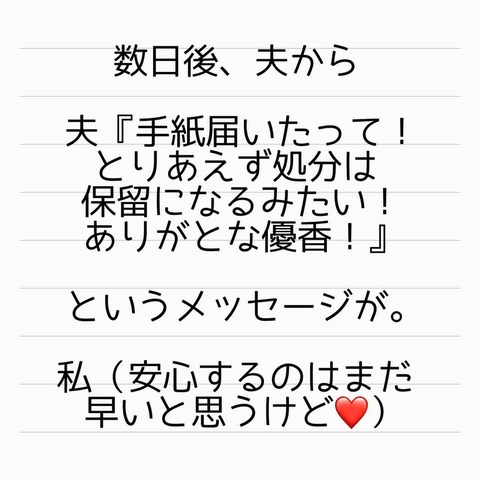 数日後、夫から
夫『手紙届いたって！
とりあえず処分は
保留になるみたい！
ありがとな優香！』
というメッセージが。
私（安心するのはまだ
早いと思うけど❤️）